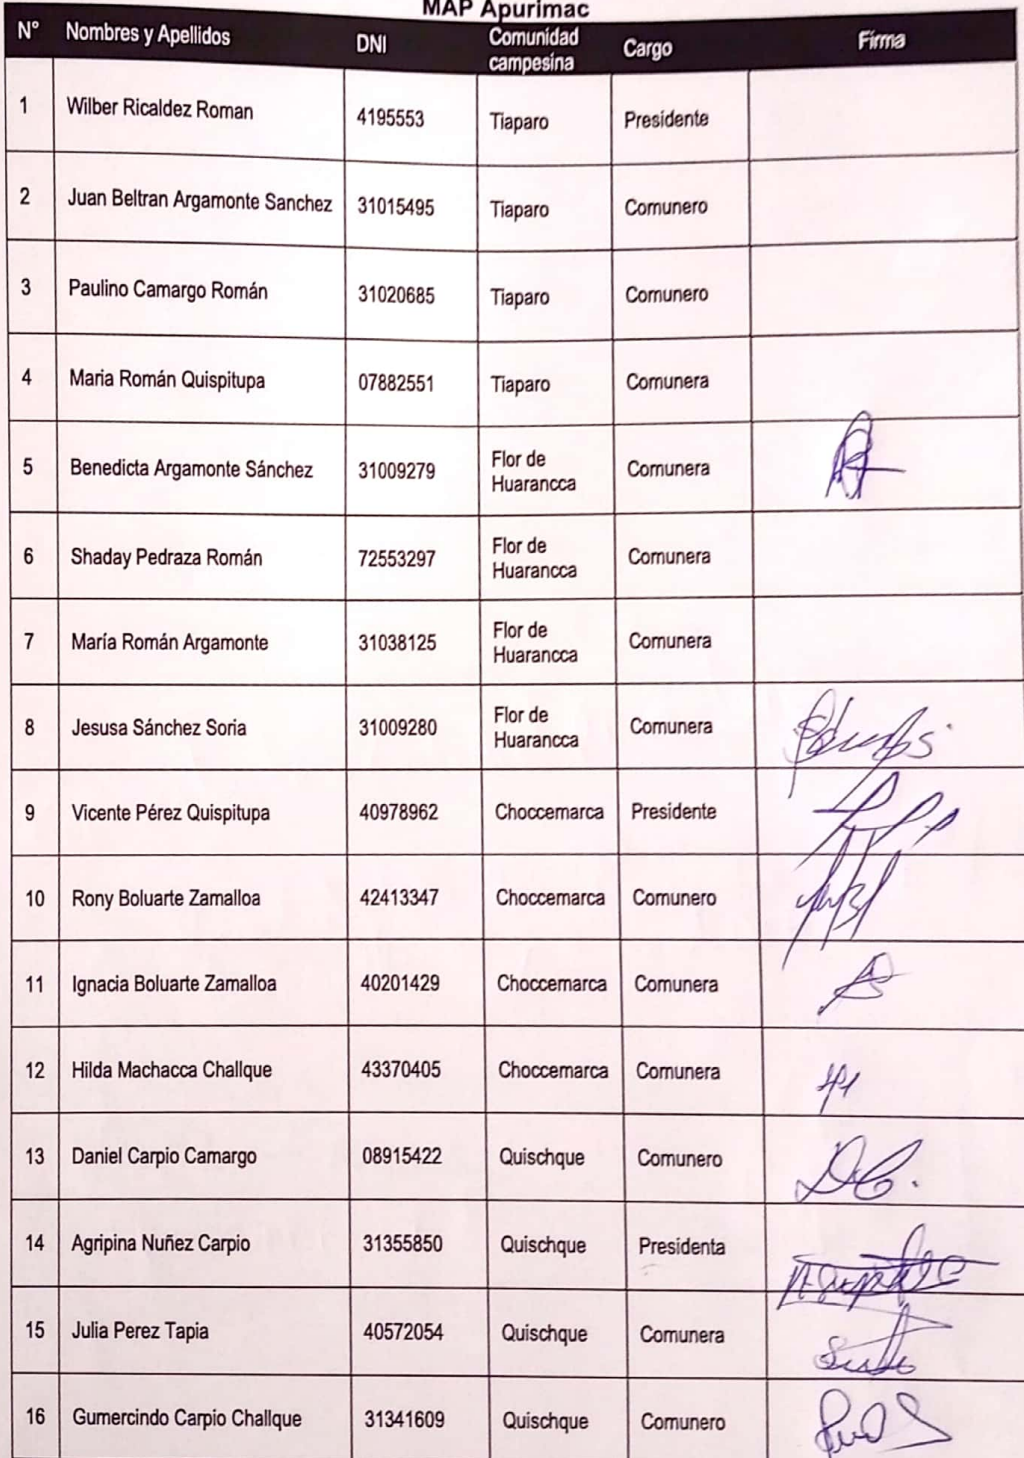 MAP Apurimac
N° Nombres y Apellidos DNI Comunidad campesina Cargo Firma
1 Wilber Ricaldez Roman 4195553 Tiaparo Presidente
2 Juan Beltran Argamonte Sanchez 31015495 Tiaparo Comunero
3 Paulino Camargo Román 31020685 Tiaparo Comunero
4 Maria Román Quispitupa 07882551 Tiaparo Comunera
5 Benedicta Argamonte Sánchez 31009279 Flor de Huarancca Comunera
6 Shaday Pedraza Román 72553297 Flor de Huarancca Comunera
7 María Román Argamonte 31038125 Flor de Huarancca Comunera
8 Jesusa Sánchez Soria 31009280 Flor de Huarancca Comunera
9 Vicente Pérez Quispitupa 40978962 Choccemarca Presidente
10 Rony Boluarte Zamalloa 42413347 Choccemarca Comunero
11 Ignacia Boluarte Zamalloa 40201429 Choccemarca Comunera
12 Hilda Machacca Challque 43370405 Choccemarca Comunera
13 Daniel Carpio Camargo 08915422 Quischque Comunero
14 Agripina Nuñez Carpio 31355850 Quischque Presidenta
15 Julia Perez Tapia 40572054 Quischque Comunera
16 Gumercindo Carpio Challque 31341609 Quischque Comunero